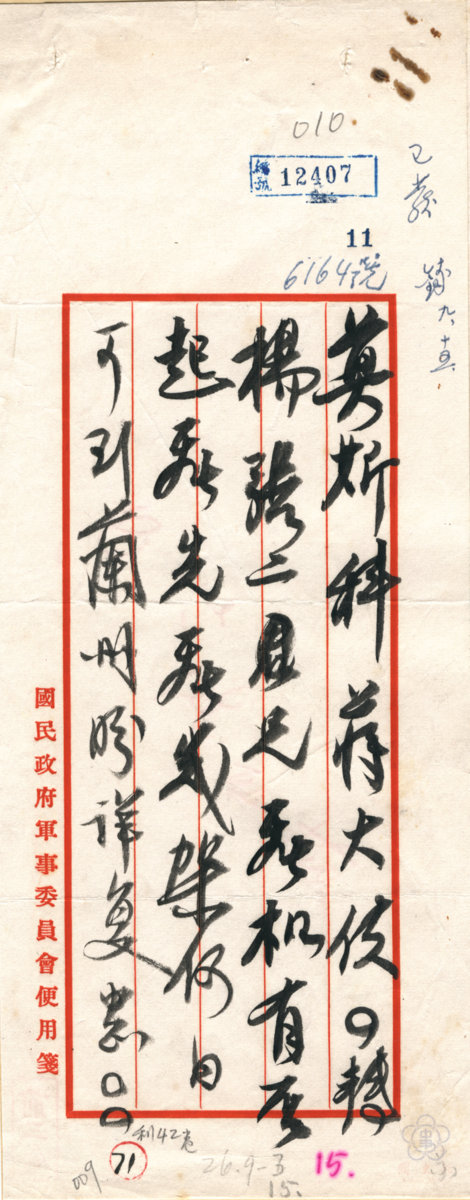 010
編號 12407
11
6164號
已發
九、十五
莫斯科蔣大使○轉
楊張二君兄飛机有否
起飛先飛幾架何日
可到蘭州盼詳復
國民政府軍事委員會便用箋
71
009
26.9-3
15.
15.